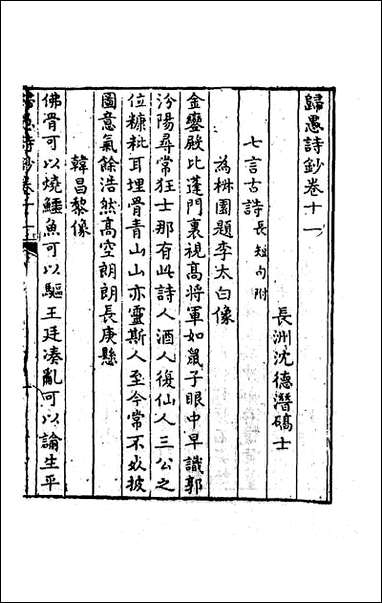 歸愚詩鈔卷十一
長洲沈德潛碻士
七言古詩長短句附
為林園題李太白像
金鑾殿比蓬門裏視高將軍如鼠子眼中早識郭
汾陽尋常狂士那有此詩人酒人復仙人三公之
位糠粃耳埋骨青山山亦靈斯人至今常不死披
圖意氣餘浩然高空朗朗長庚懸
韓昌黎像
佛骨可以燒鱷魚可以驅王廷湊亂可以論生平
歸愚詩鈔卷十一